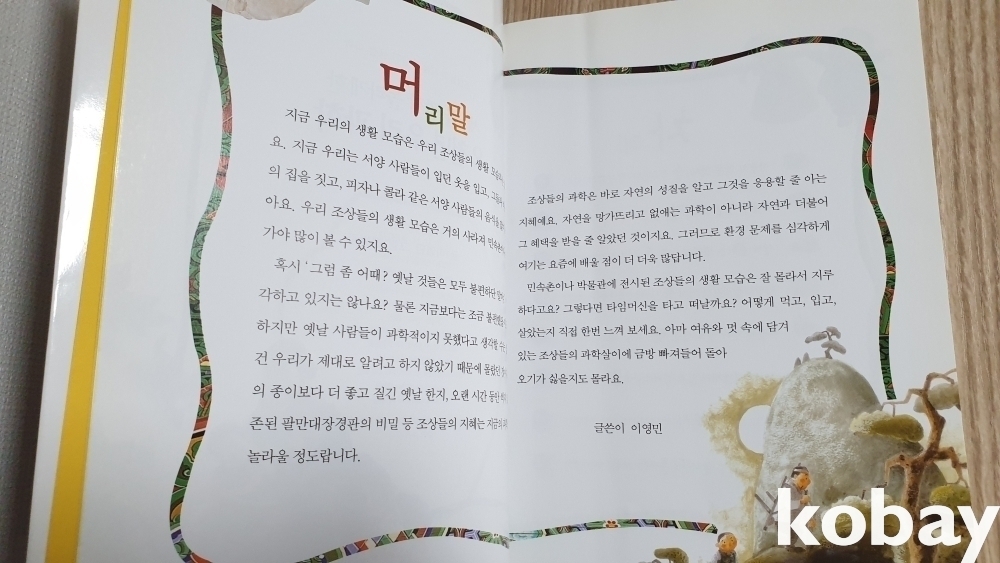 머리말
지금 우리의 생활 모습은 우리 조상들의 생활
요. 지금 우리는 서양 사람들이 입던 옷을 입고,
의 집을 짓고, 피자나 콜라 같은 서양 사람들의
아요. 우리 조상들의 생활 모습은 거의 사라져
가야 많이 볼 수 있지요.
혹시 '그럼 좀 어때? 옛날 것들은 모두 불편하단
각하고 있지는 않나요? 물론 지금보다는 조금
하지만 옛날 사람들이 과학적이지 못했다고
건 우리가 제대로 알려고 하지 않았기 때문에
의 종이보다 더 좋고 질긴 옛날 한지, 오랜 시간 동안
존된 팔만대장경판의 비밀 등 조상들의 지혜는
놀라울 정도랍니다.
조상들의 과학은 바로 자연의 성질을 알고 그것을 응용할 줄 아는
지혜예요. 자연을 망가뜨리고 없애는 과학이 아니라 자연과 더불어
그 혜택을 받을 줄 알았던 것이지요. 그러므로 환경 문제를 심각하게
여기는 요즘에 배울 점이 더 더욱 많답니다.
민속촌이나 박물관에 전시된 조상들의 생활 모습은 잘 몰라서 지루
하다고요? 그렇다면 타임머신을 타고 떠날까요? 어떻게 먹고, 입고,
살았는지 직접 한번 느껴 보세요. 아마 여유와 멋 속에 담겨
있는 조상들의 과학살이에 금방 빠져들어 돌아
오기가 싫을지도 몰라요.
글쓴이 이영민
kobay